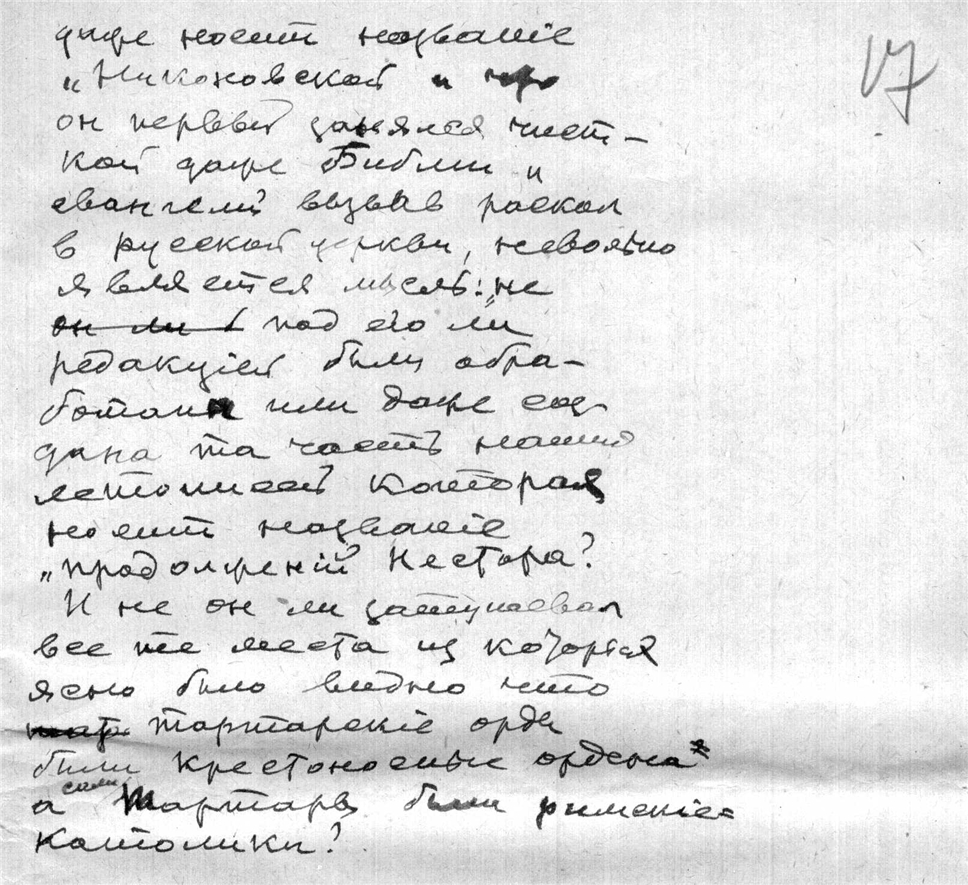 17
даже носит названіе
„Никоновской и
он первый занялся чист-
кой даже Библии и
евангелий вызвав раскол
в русской церкви, невольно
является мысль: „не
он ли под его ли
редакціей были обра-
ботаны или даже соз-
дана та часть нашей
летописей которая
носит названіе
„продолженій Нестора?
И не он ли затушевал
все те места из которых
ясно было видно что
тартарскіе орды
были крестоносные ордена*
а сами тартары были римскіе-
католики?